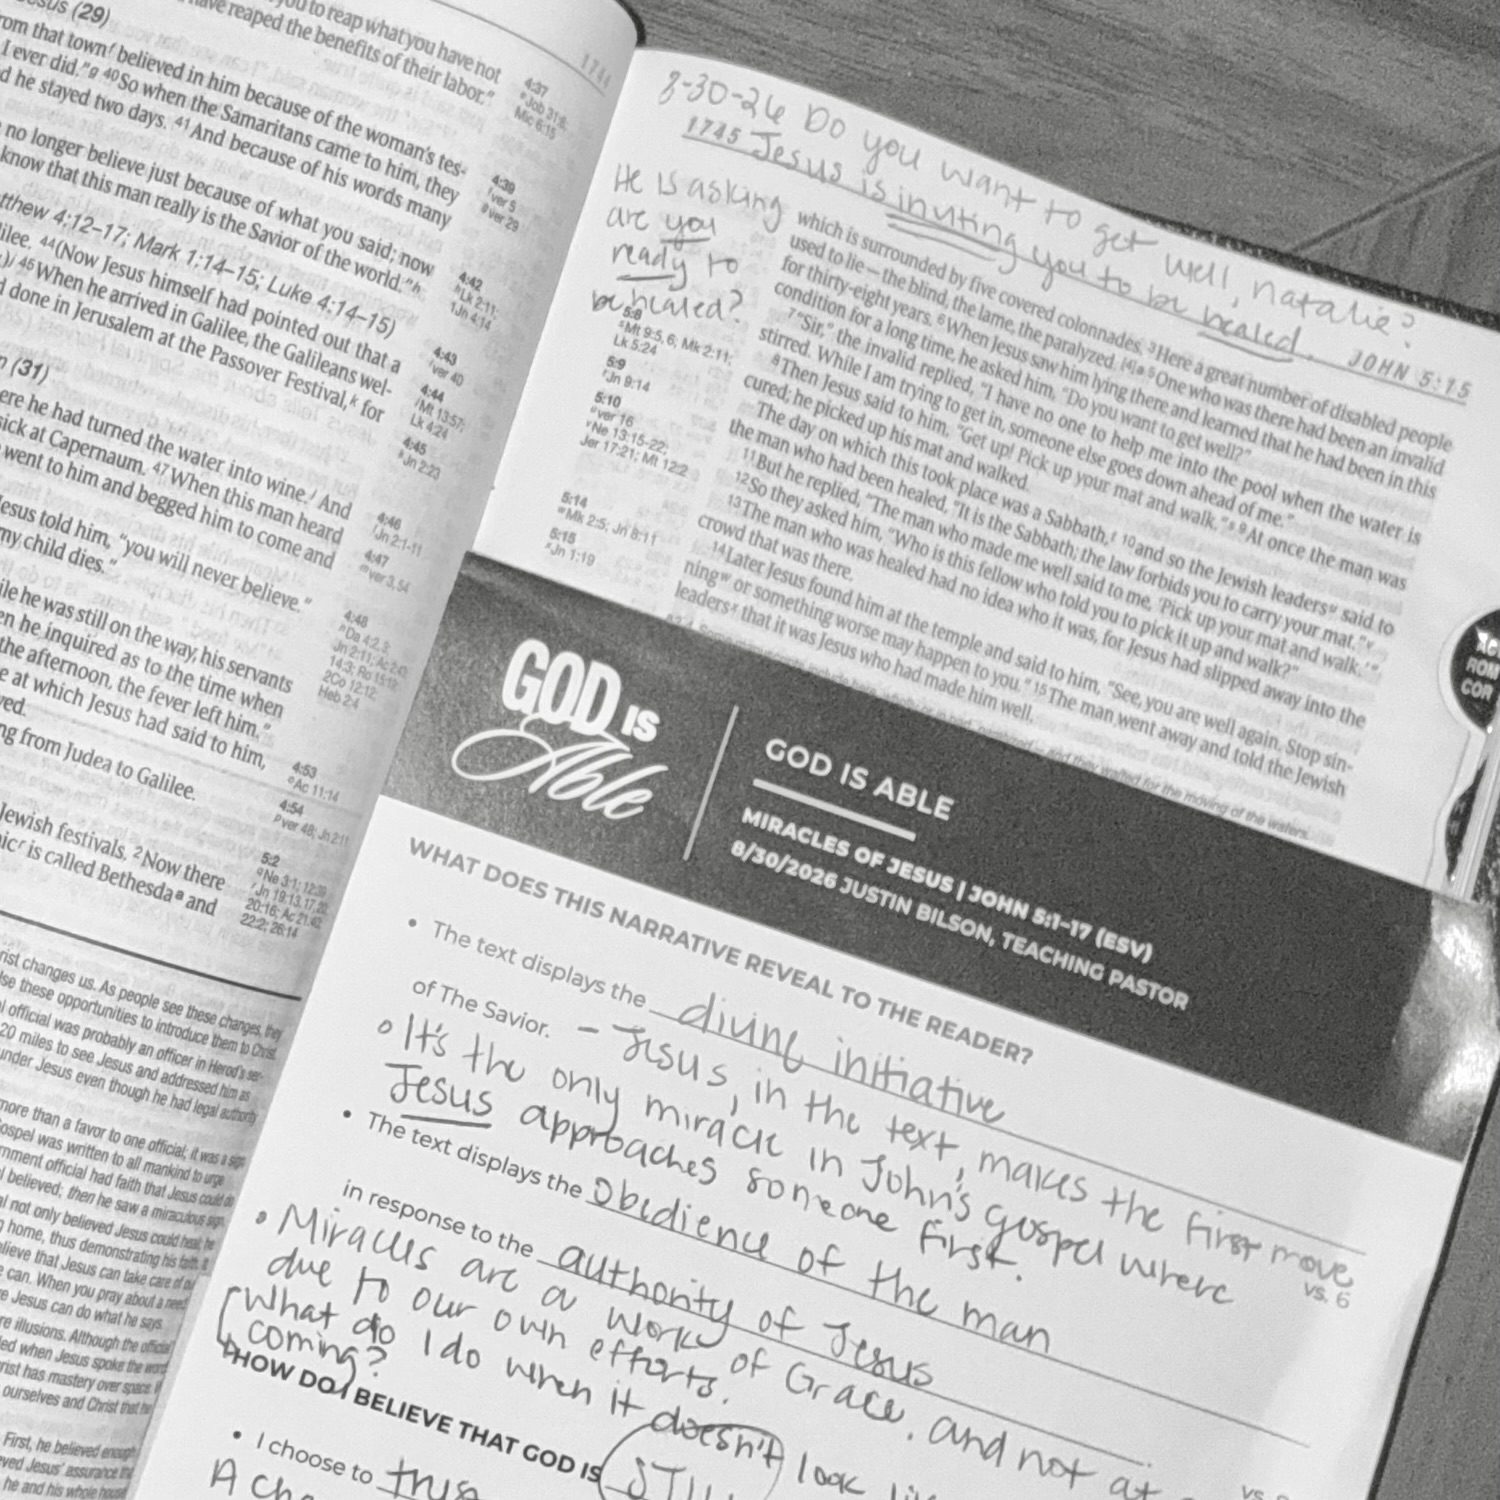 Jesus (29)
you to reap what you have not
have reaped the benefits of their labor."
rom that town believed in him because of the woman's tes-
I ever did." 40 So when the Samaritans came to him, they
d he stayed two days. 41 And because of his words many
no longer believe just because of what you said; now
know that this man really is the Savior of the world."
tthew 4:12–17; Mark 1:14–15; Luke 4:14–15)
lilee. 44 (Now Jesus himself had pointed out that a
45 When he arrived in Galilee, the Galileans wel-
d done in Jerusalem at the Passover Festival, for
n (31)
ere he had turned the water into wine. And
sick at Capernaum. 47 When this man heard
went to him and begged him to come and
Jesus told him, "you will never believe."
my child dies."
ile he was still on the way, his servants
en he inquired as to the time when
the afternoon, the fever left him."
e at which Jesus had said to him,
ved.
ng from Judea to Galilee.
Jewish festivals. 2 Now there
is called Bethesda and
1744
4:37
Job 31:8;
Mic 6:15
4:39
ver 5
ver 29
4:42
Lk 2:11;
1Jn 4:14
4:43
ver 40
4:44
Mt 13:57;
Lk 4:24
4:45
Jn 2:23
4:46
Jn 2:1-11
4:47
ver 3, 54
4:48
Da 4:2,3;
Jn 2:11; Ac 2:43;
14:3; Ro 15:19;
2Co 12:12;
Heb 2:4
4:53
Ac 11:14
4:54
ver 48; Jn 2:11
5:2
Ne 3:1; 12:39
Jn 19:13,17,20;
20:16; Ac 21:40;
22:2; 26:14
rist changes us. As people see these changes, they
se these opportunities to introduce them to Christ.
l official was probably an officer in Herod's ser-
20 miles to see Jesus and addressed him as
under Jesus even though he had legal authority
more than a favor to one official; it was a sign
Gospel was written to all mankind to urge
rnment official had faith that Jesus could do
l believed; then he saw a miraculous sign.
al not only believed Jesus could heal; he
home, thus demonstrating his faith. It
elieve that Jesus can take care of our
e can. When you pray about a need,
e Jesus can do what he says.
re illusions. Although the official
ed when Jesus spoke the word.
rist has mastery over space.
ourselves and Christ that he
First, he believed enough
ved Jesus' assurance that
he and his whole house
8-30-26 Do you want to get well, natalie?
1745 Jesus is inviting you to be healed. JOHN 5:15
He is asking
are you
ready to
be healed?
5:8
Mt 9:5,6; Mk 2:11;
Lk 5:24
5:9
Jn 9:14
5:10
ver 16
Ne 13:15-22;
Jer 17:21; Mt 12:2
5:14
Mk 2:5; Jn 8:11
5:15
Jn 1:19
which is surrounded by five covered colonnades. 3 Here a great number of disabled people
used to lie—the blind, the lame, the paralyzed. [4] a 5 One who was there had been an invalid
for thirty-eight years. 6 When Jesus saw him lying there and learned that he had been in this
condition for a long time, he asked him, "Do you want to get well?"
7 "Sir," the invalid replied, "I have no one to help me into the pool when the water is
stirred. While I am trying to get in, someone else goes down ahead of me."
8 Then Jesus said to him, "Get up! Pick up your mat and walk." s 9 At once the man was
cured; he picked up his mat and walked.
The day on which this took place was a Sabbath, t 10 and so the Jewish leaders u said to
the man who had been healed, "It is the Sabbath; the law forbids you to carry your mat." v
11 But he replied, "The man who made me well said to me, 'Pick up your mat and walk.'"
12 So they asked him, "Who is this fellow who told you to pick it up and walk?"
13 The man who was healed had no idea who it was, for Jesus had slipped away into the
crowd that was there.
14 Later Jesus found him at the temple and said to him, "See, you are well again. Stop sin-
ning w or something worse may happen to you." 15 The man went away and told the Jewish
leaders x that it was Jesus who had made him well.
and they waited for the moving of the waters.
ROM
COR
GOD IS
Able
GOD IS ABLE
MIRACLES OF JESUS | JOHN 5:1–17 (ESV)
8/30/2026 JUSTIN BILSON, TEACHING PASTOR
WHAT DOES THIS NARRATIVE REVEAL TO THE READER?
• The text displays the divine initiative
of The Savior. – Jesus, in the text, makes the first move
vs. 6
• It's the only miracle in John's gospel where
Jesus approaches someone first.
• The text displays the obedience of the man
in response to the authority of Jesus
• Miracles are a work of Grace, and not
due to our own efforts.
What do I do when it doesn't look
coming?
HOW DO I BELIEVE THAT GOD IS STILL
• I choose to
A